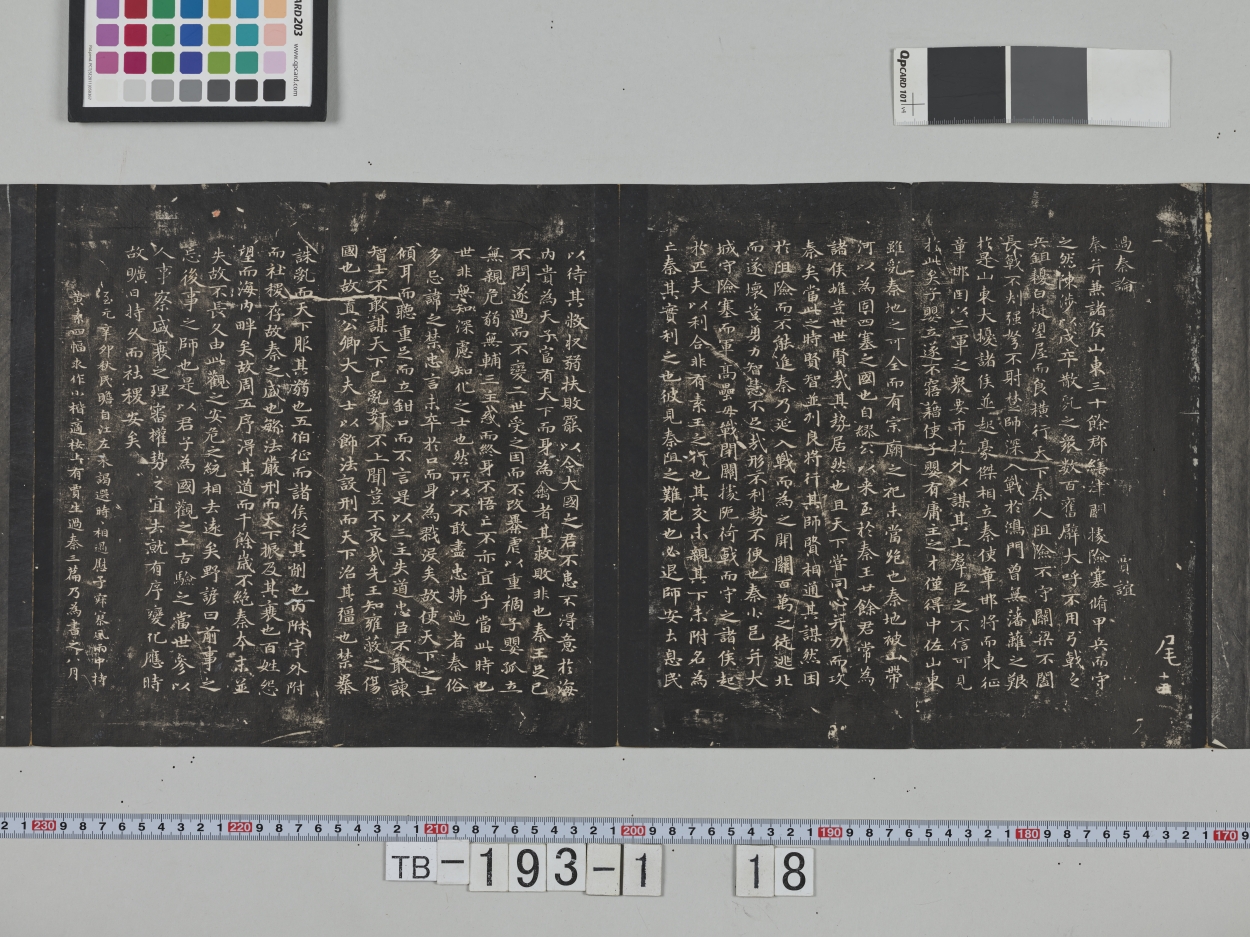 過秦論　賈誼
尾
十五
秦并兼諸侯山東三十餘郡繕津關據險塞脩甲兵而守
之然陳涉以戍卒散亂之衆數百奮臂大呼不用弓戟之
兵鉏櫌白梃望屋而食橫行天下秦人阻險不守關梁不闔
長戟不刺强弩不射楚師深入戰於鴻門曾無藩籬之艱
於是山東大擾諸侯並起豪傑相立秦使章邯將而東征
章邯因以三軍之衆要市於外以謀其上羣臣之不信可見
於此矣子嬰立遂不寤藉使子嬰有庸主之才僅得中佐山東
雖亂秦地之可全而有宗廟之祀未當絶也秦地被山帶
河以為固四塞之國也自繆公以來至於秦王廿餘君常為
諸侯雄豈世世賢哉其勢居然也且天下嘗同心并力而攻
秦矣當此之時賢智並列良將行其師賢相通其謀然困
於阻險而不能進秦乃延入戰而為之開關百萬之徒逃北
而遂壞豈勇力智慧不足哉形不利勢不便也秦小邑并大
城守險塞而軍高壘毋戰閉關據阨荷戟而守之諸侯起
於匹夫以利合非有素王之行也其交未親其下未附名為
亡秦其實利之也彼見秦阻之難犯也必退師安土息民
以待其敝收弱扶敗罷以令大國之君不患不得意於海
內貴為天子富有天下而身為禽者其救敗非也秦王足己
不問遂過而不變二世受之因而不改暴虐以重禍子嬰孤立
無親危弱無輔三主惑而終身不悟亡不亦宜乎當此時也
世非無知深慮知化之士也然所以不敢盡忠拂過者秦俗
多忌諱之禁忠言未卒於口而身為戮没矣故使天下之士
傾耳而聽重足而立鉗口而不言是以三主失道忠臣不敢諫
智士不敢謀天下已亂姧不上聞豈不哀哉先王知雍蔽之傷
國也故置公卿大夫士以飾法設刑而天下治其彊也禁暴
誅亂而天下服其弱也五伯征而諸侯從其削也內守外附
而社稷存故秦之盛也繁法嚴刑而天下振及其衰也百姓怨
望而海內畔矣故周五序得其道而千餘歲不絶秦本末並
失故不長久由此觀之安危之統相去遠矣野諺曰前事之
忘後事之師也是以君子為國觀之上古驗之當世參以
人事察盛衰之理審權勢之宜去就有序變化應時
故曠日持久而社稷安矣
至元辛卯秋民瞻自江左來謁選時相過風雨中持
黃素四幅求作小楷適按上有賈生過秦二篇乃為書之八月
CARD 203
www.qpcard.com
QPCARD 101 v4
2 1 230 9 8 7 6 5 4 3 2 1 220 9 8 7 6 5 4 3 2 1 210 9 8 7 6 5 4 3 2 1 200 9 8 7 6 5 4 3 2 1 190 9 8 7 6 5 4 3 2 1 180 9 8 7 6 5 4 3 2 1 170 9
TB-193-1 18